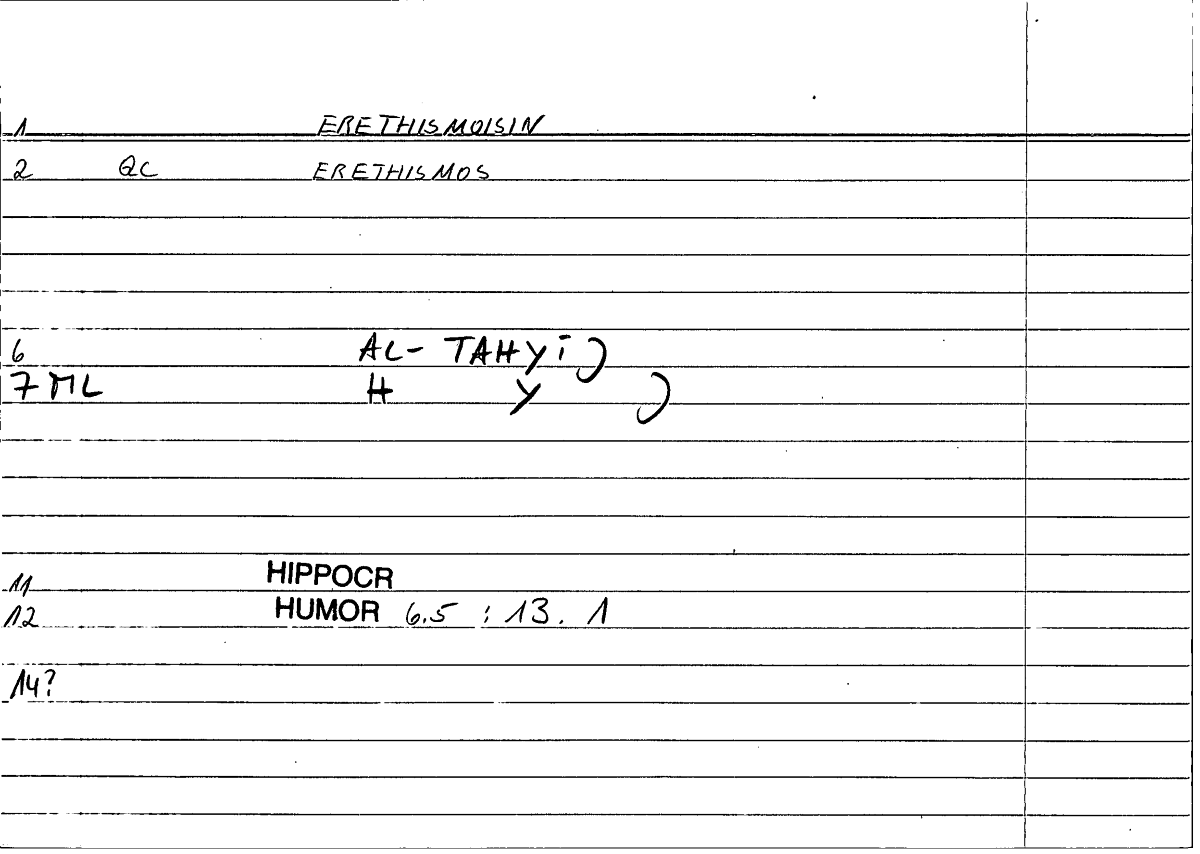 1 ERETHISMOISIN
2 QC ERETHISMOS
6 AL- TAHYĪJ
7 ML H Y J
11 HIPPOCR
12 HUMOR 6.5 : 13. 1
14?